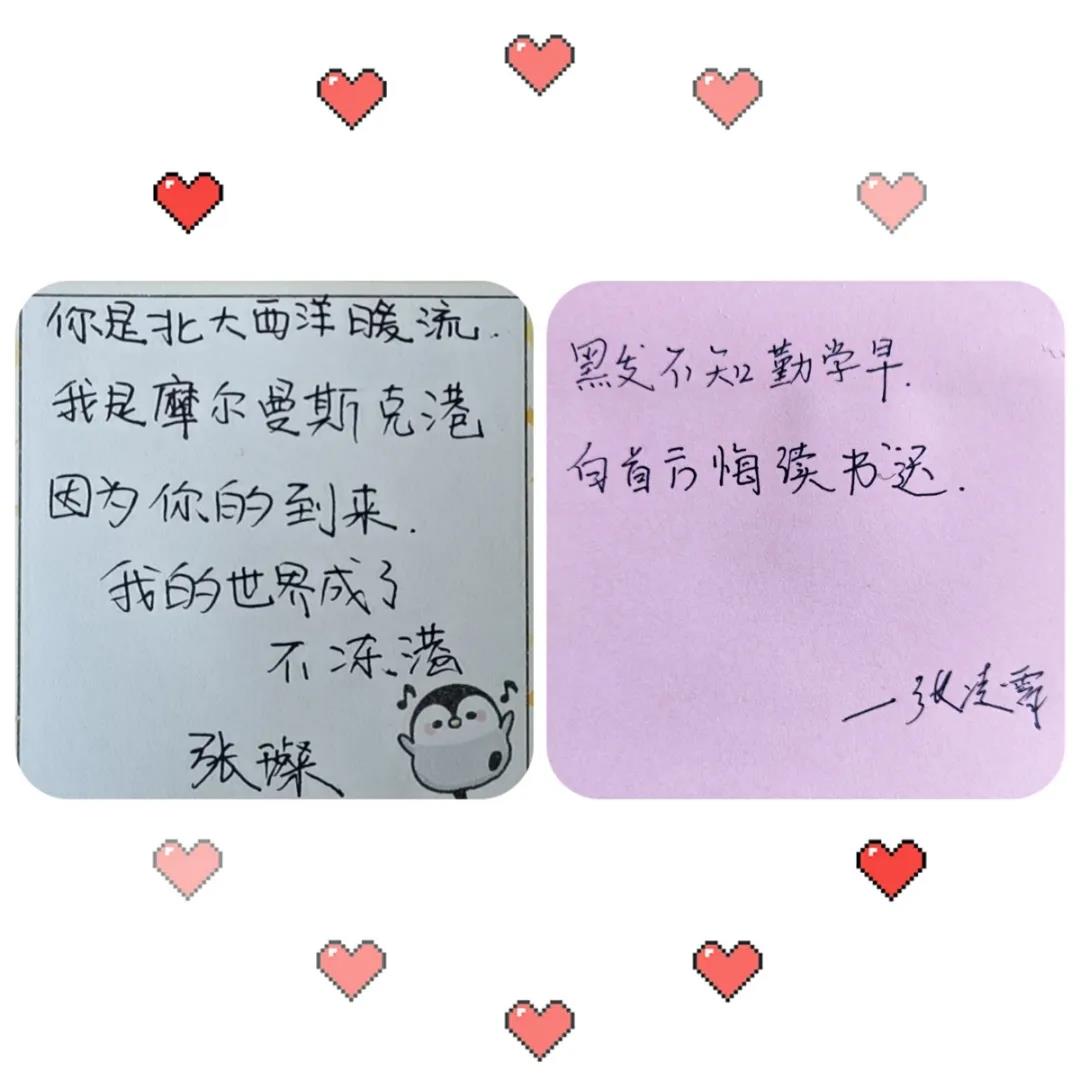 你是北大西洋暖流.
我是摩尔曼斯克港
因为你的到来.
我的世界成了
不冻港
张璨
黑发不知勤学早.
白首方悔读书迟.
—张凌霄